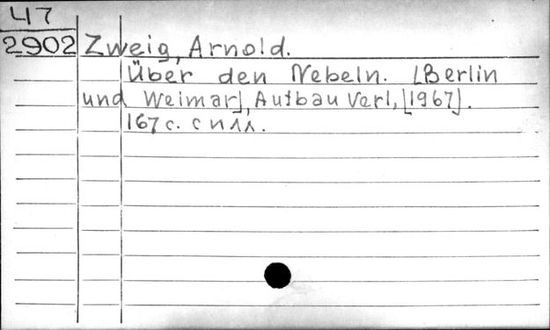 47
2902 Zweig, Arnold.
Über den Nebeln. [Berlin
und Weimar], Aufbau Verl, [1967].
167 с. с илл.